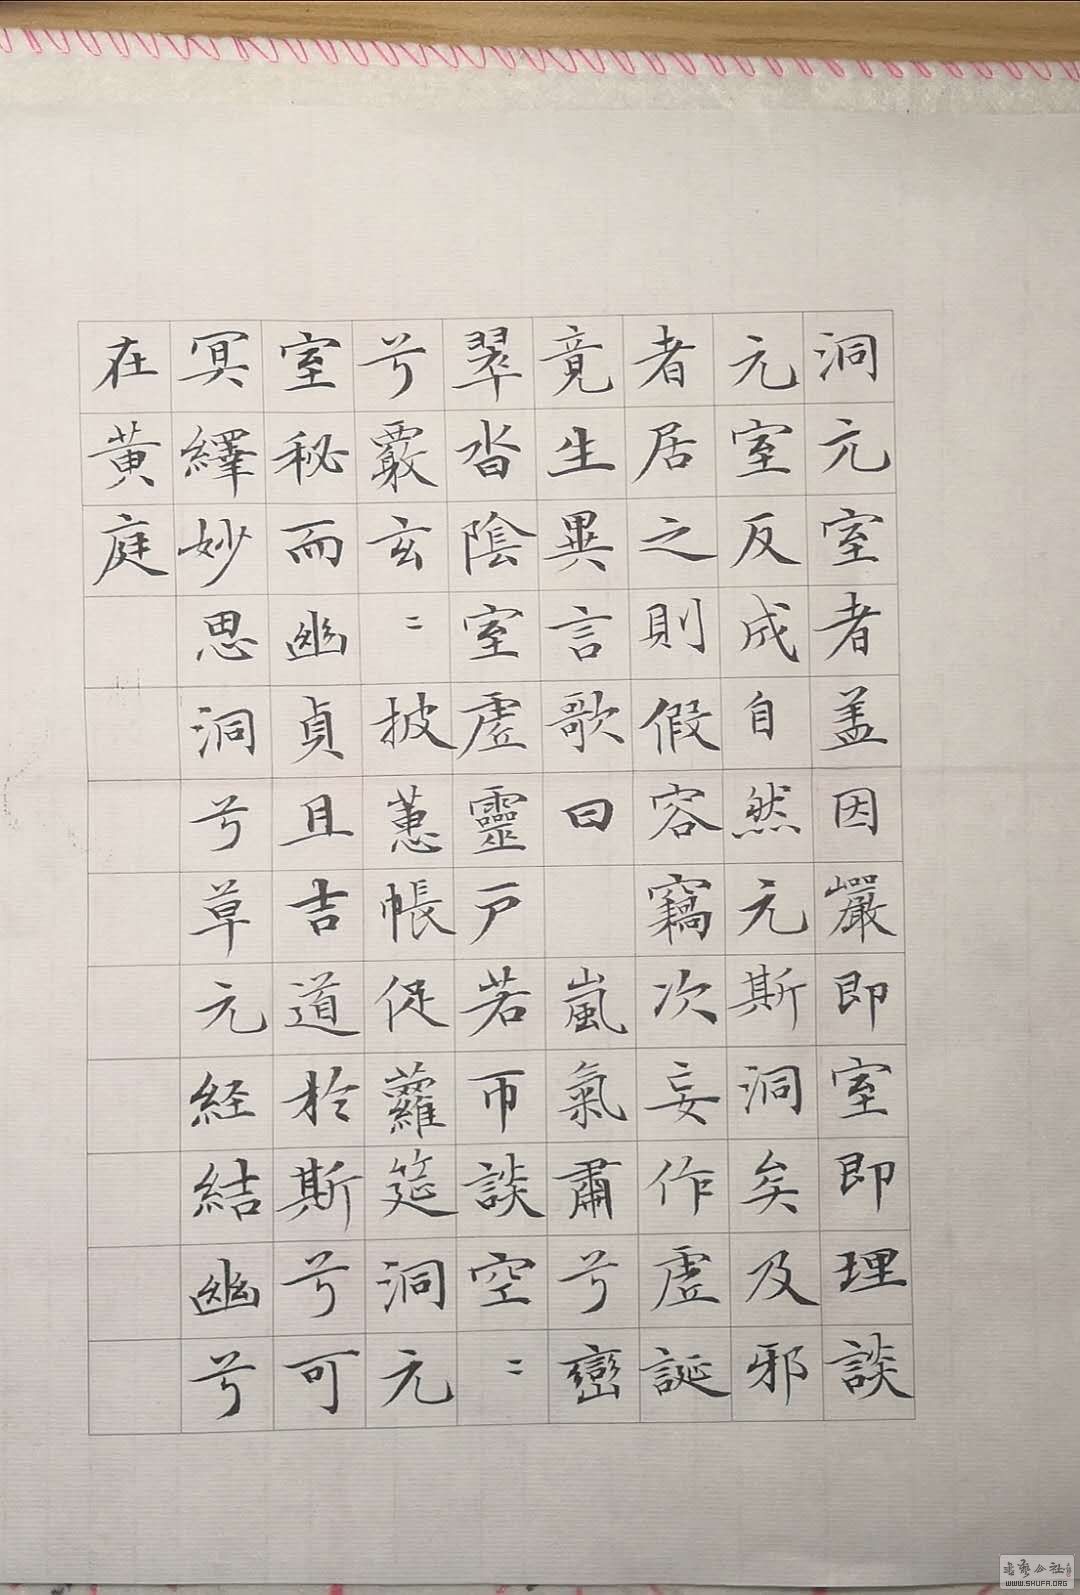 洞元室者盖因巖即室即理談
元室反成自然元斯洞矣及邪
者居之則假容竊次妄作虛誕
竟生異言歌曰 嵐氣肅兮巒
翠沓陰室虛靈户若帀談空〻
兮覈玄〻披蕙帳促蘿筵洞元
室秘而幽貞且吉道於斯兮可
冥繹妙思洞兮草元経結幽兮
在黄庭
WWW.SHUFA.ORG